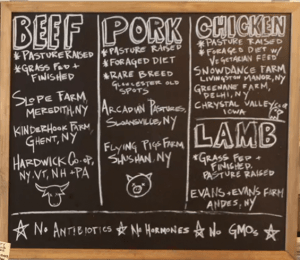 BEEF
*PASTURE RAISED
*GRASS FED +
FINISHED
SLOPE FARM,
MEREDITH, NY
KINDERHOOK FARM,
GHENT, NY
HARDWICK CO-OP,
NY, VT, NH + PA
PORK
*PASTURE RAISED
*FORAGED DIET
*RARE BREED
GLOUCESTER OLD
SPOTS
ARCADIAN PASTURES,
SLOANSVILLE, NY
FLYING PIGS FARM,
SHUSHAN, NY
CHICKEN
*PASTURE RAISED
*FORAGED DIET W/
VEGETARIAN FEED
SNOWDANCE FARM
LIVINGSTON MANOR, NY
GREENANE FARM,
DELHI, NY
CHRYSTAL VALLEY
IOWA
LAMB
*GRASS FED +
FINISHED,
PASTURE RAISED
EVANS + EVANS FARM
ANDES, NY
No ANTIBIOTICS No HORMONES No GMOs